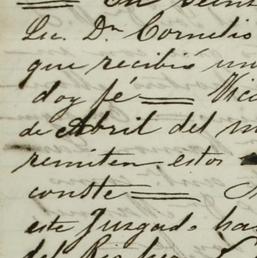 En veint
Lic. Dn Cornelio
que recibió un
doy fé Vic
de Abril del m
remiten estos
conste
este Juzgado ha